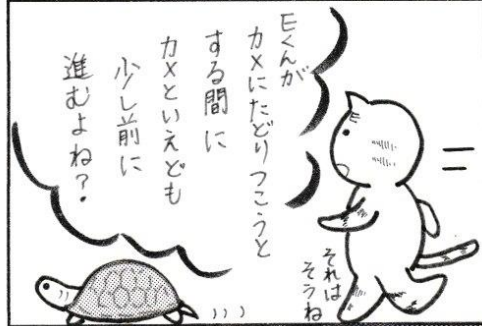 Eくんが
カメにたどりつこうと
する間に
カメといえども
少し前に
進むよね?
それは
そうね